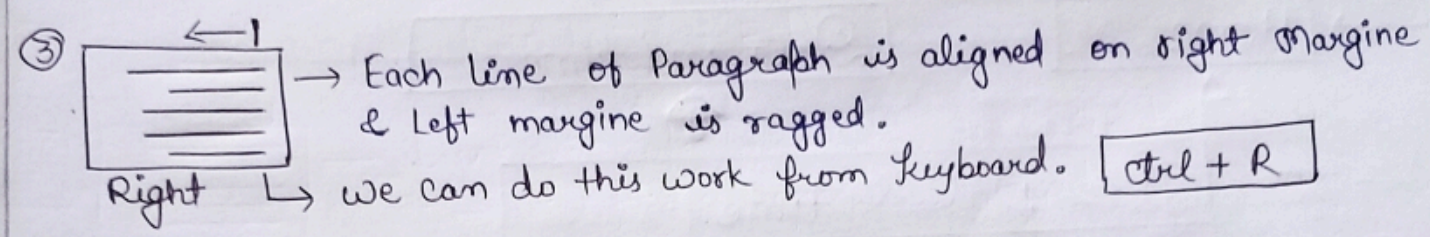 ③ → Each line of Paragraph is aligned on right Margine
& Left margine is ragged.
Right ↳ we can do this work from keyboard. ctrl + R